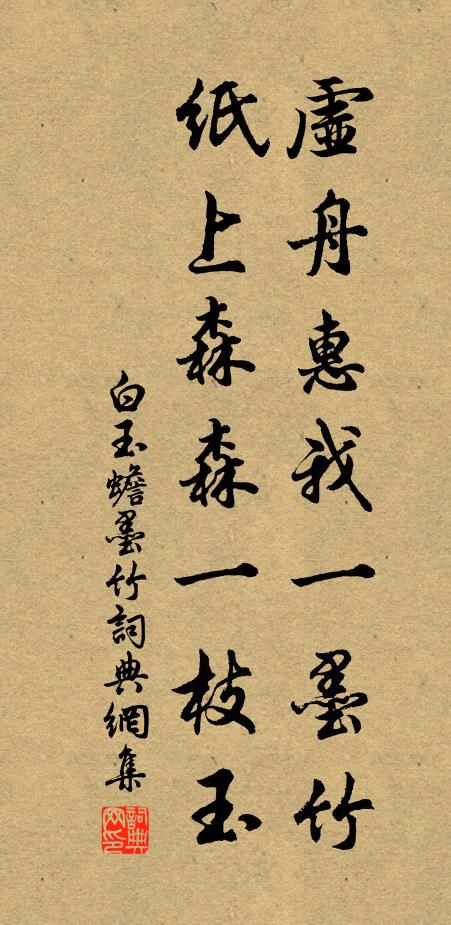 虛舟惠我一墨竹
紙上森森一枝玉
白玉蟾墨竹詞典網集
詞典网印